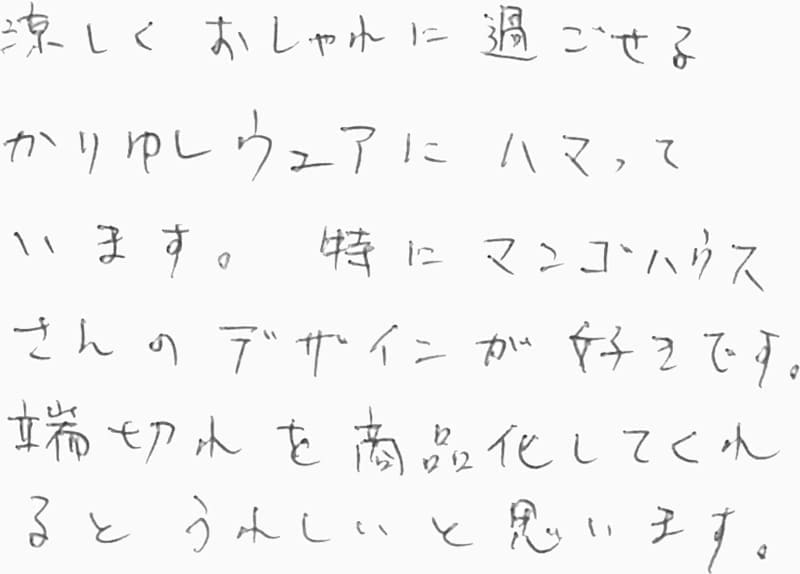 涼しくおしゃれに過ごせる
かりゆしウェアにハマって
います。特にマンゴハウス
さんのデザインが好きです。
端切れを商品化してくれ
るとうれしいと思います。